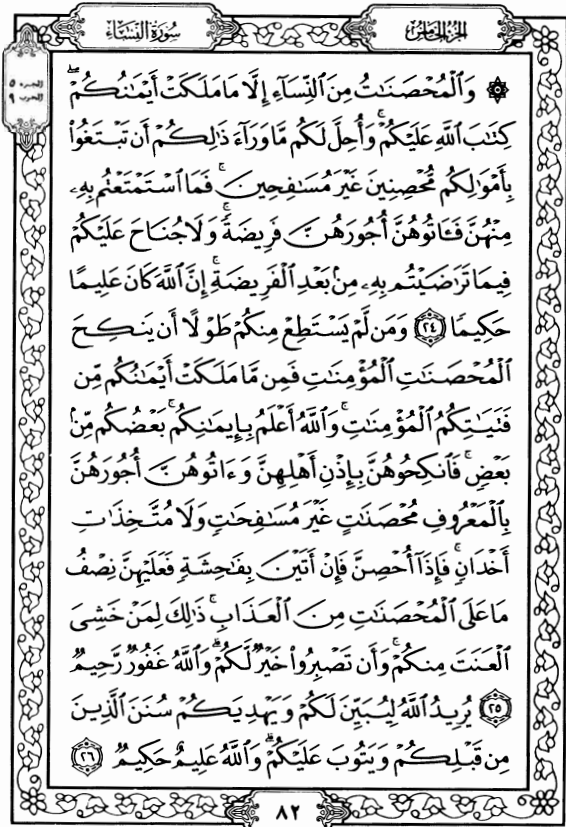 سُورَةُ النِّسَاءِ
الجُزْءُ الخَامِسُ
الجزء ٥
الحزب ٩
۞ وَٱلْمُحْصَنَٰتُ مِنَ ٱلنِّسَآءِ إِلَّا مَا مَلَكَتْ أَيْمَٰنُكُمْ ۖ
كِتَٰبَ ٱللَّهِ عَلَيْكُمْ ۚ وَأُحِلَّ لَكُم مَّا وَرَآءَ ذَٰلِكُمْ أَن تَبْتَغُوا۟
بِأَمْوَٰلِكُم مُّحْصِنِينَ غَيْرَ مُسَٰفِحِينَ ۚ فَمَا ٱسْتَمْتَعْتُم بِهِۦ
مِنْهُنَّ فَـَٔاتُوهُنَّ أُجُورَهُنَّ فَرِيضَةً ۚ وَلَا جُنَاحَ عَلَيْكُمْ
فِيمَا تَرَٰضَيْتُم بِهِۦ مِنۢ بَعْدِ ٱلْفَرِيضَةِ ۚ إِنَّ ٱللَّهَ كَانَ عَلِيمًا
حَكِيمًا ٢٤ وَمَن لَّمْ يَسْتَطِعْ مِنكُمْ طَوْلًا أَن يَنكِحَ
ٱلْمُحْصَنَٰتِ ٱلْمُؤْمِنَٰتِ فَمِن مَّا مَلَكَتْ أَيْمَٰنُكُم مِّن
فَتَيَٰتِكُمُ ٱلْمُؤْمِنَٰتِ ۚ وَٱللَّهُ أَعْلَمُ بِإِيمَٰنِكُم ۚ بَعْضُكُم مِّنۢ
بَعْضٍ ۚ فَٱنكِحُوهُنَّ بِإِذْنِ أَهْلِهِنَّ وَءَاتُوهُنَّ أُجُورَهُنَّ
بِٱلْمَعْرُوفِ مُحْصَنَٰتٍ غَيْرَ مُسَٰفِحَٰتٍ وَلَا مُتَّخِذَٰتِ
أَخْدَانٍ ۚ فَإِذَآ أُحْصِنَّ فَإِنْ أَتَيْنَ بِفَٰحِشَةٍ فَعَلَيْهِنَّ نِصْفُ
مَا عَلَى ٱلْمُحْصَنَٰتِ مِنَ ٱلْعَذَابِ ۚ ذَٰلِكَ لِمَنْ خَشِىَ
ٱلْعَنَتَ مِنكُمْ ۚ وَأَن تَصْبِرُوا۟ خَيْرٌ لَّكُمْ ۗ وَٱللَّهُ غَفُورٌ رَّحِيمٌ
٢٥ يُرِيدُ ٱللَّهُ لِيُبَيِّنَ لَكُمْ وَيَهْدِيَكُمْ سُنَنَ ٱلَّذِينَ
مِن قَبْلِكُمْ وَيَتُوبَ عَلَيْكُمْ ۗ وَٱللَّهُ عَلِيمٌ حَكِيمٌ ٢٦
٨٢